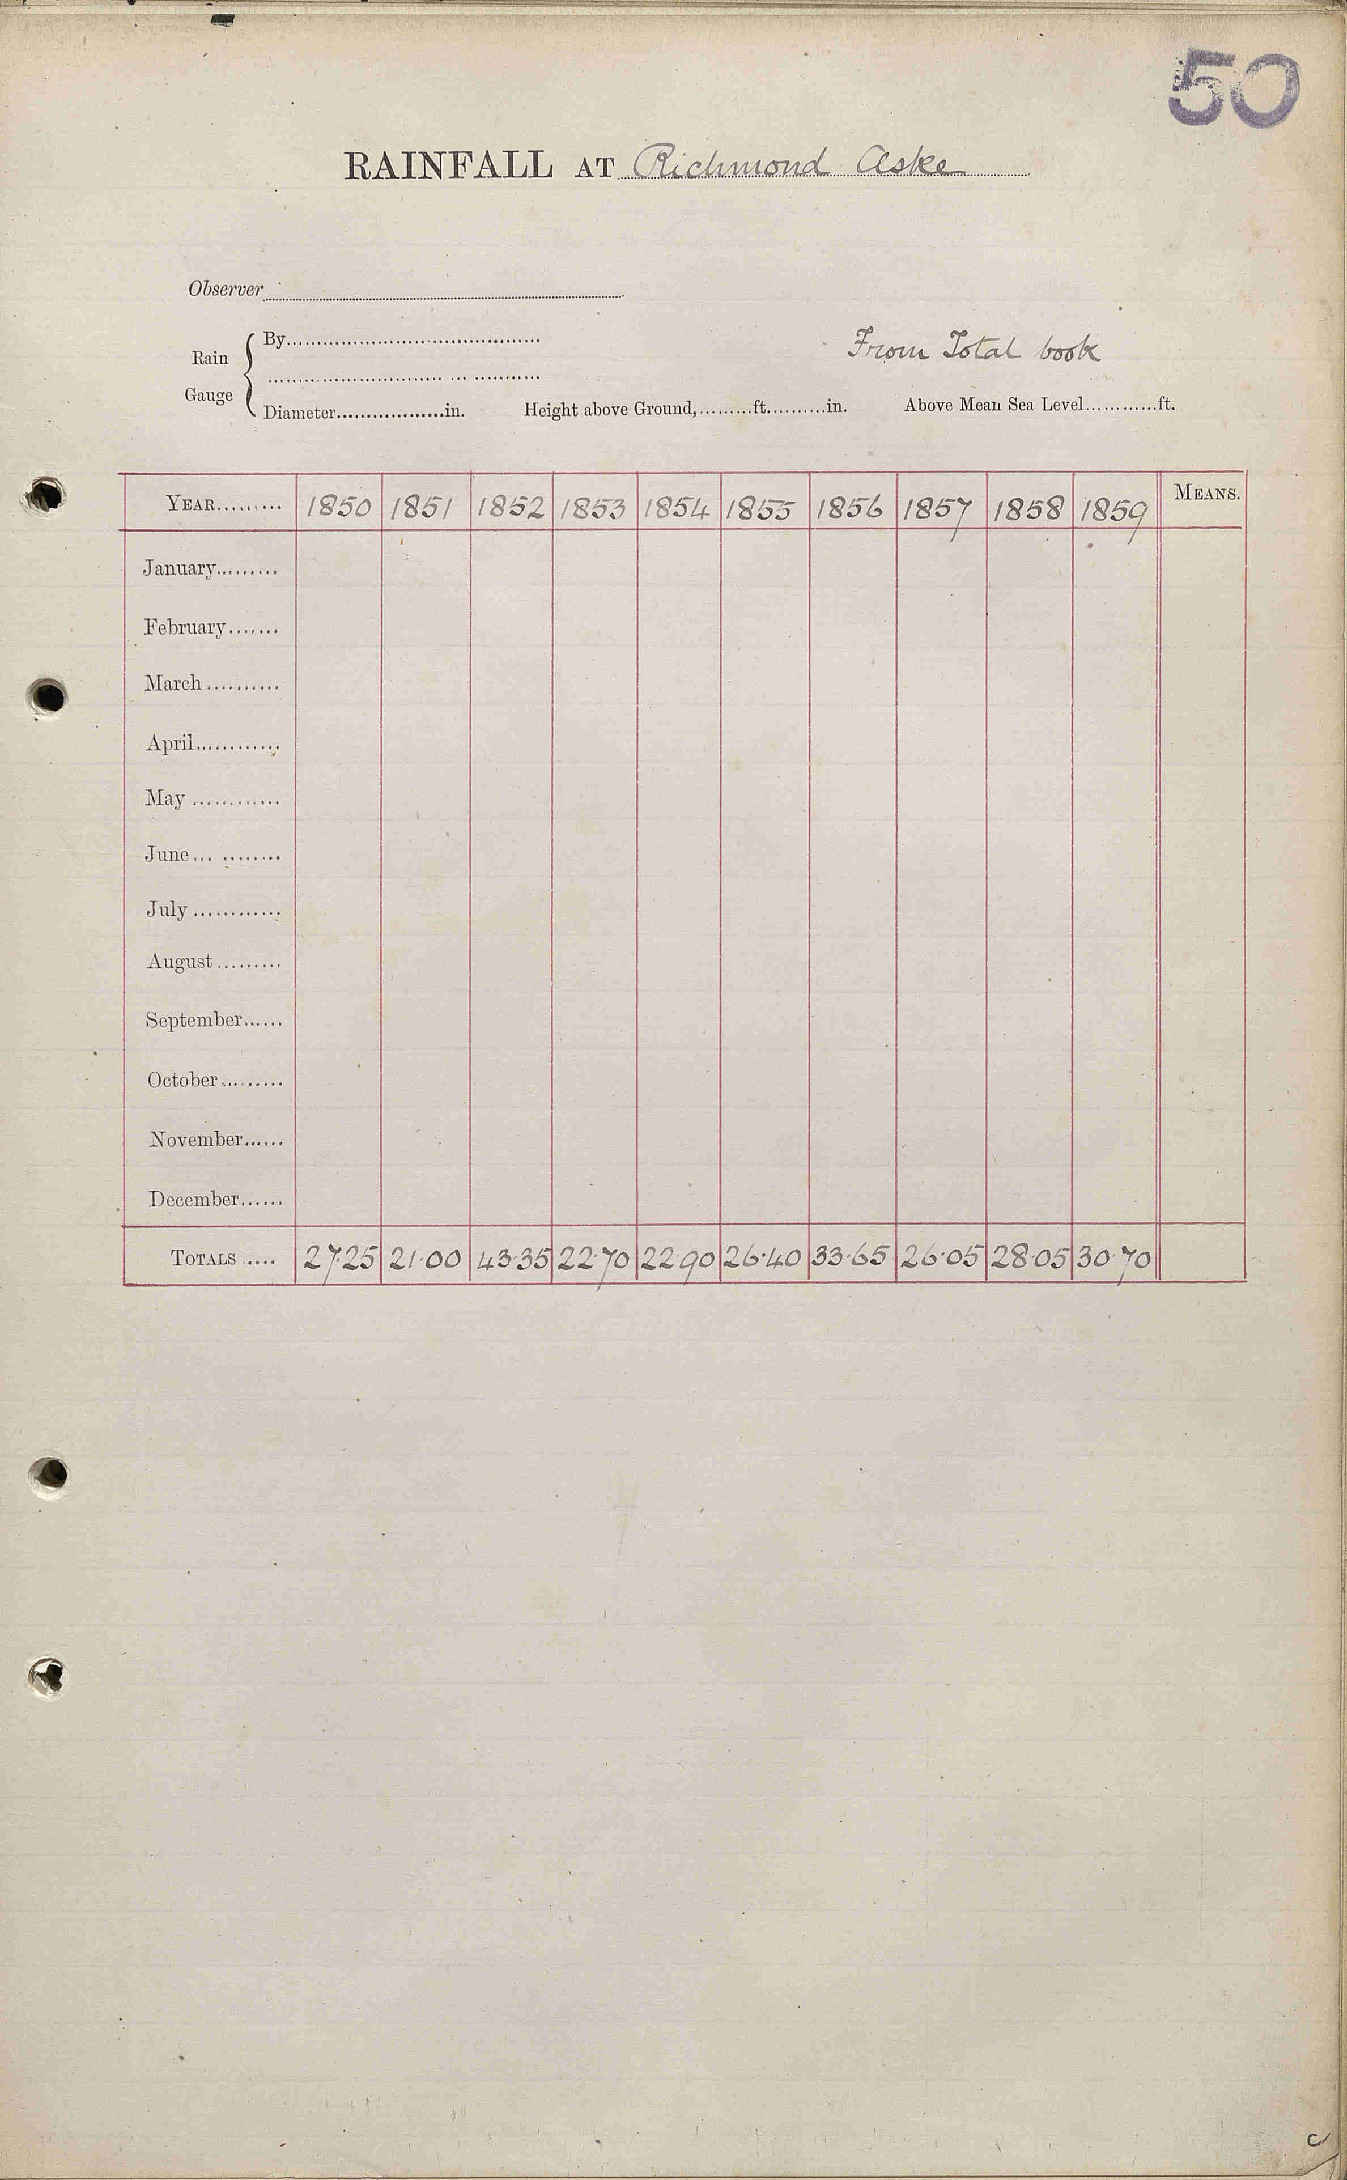 50
RAINFALL AT Richmond Aske
Observer
Rain Gauge { By
From Total book
Diameter..................in. Height above Ground,.........ft..........in. Above Mean Sea Level............ft.
YEAR......... 1850 1851 1852 1853 1854 1855 1856 1857 1858 1859 MEANS.
January.........
February.......
March..........
April............
May ............
June... ........
July ............
August.........
September......
October.........
November......
December......
TOTALS .... 27·25 21·00 43·35 22·70 22·90 26·40 33·65 26·05 28·05 30·70
c